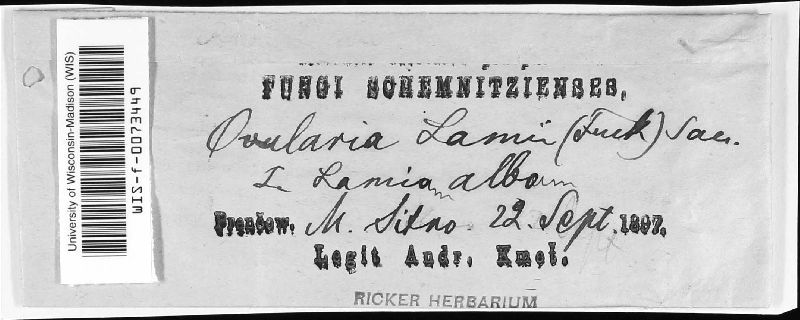 University of Wisconsin-Madison (WIS)
WIS-f-0073449
FUNGI SCHEMNITZIENSES,
Ovularia Lamii (Fuck) Sacc.
In Lamium album
Prenčow. M. Sitno 22. Sept. 1897.
Legit Andr. Kmeť.
RICKER HERBARIUM